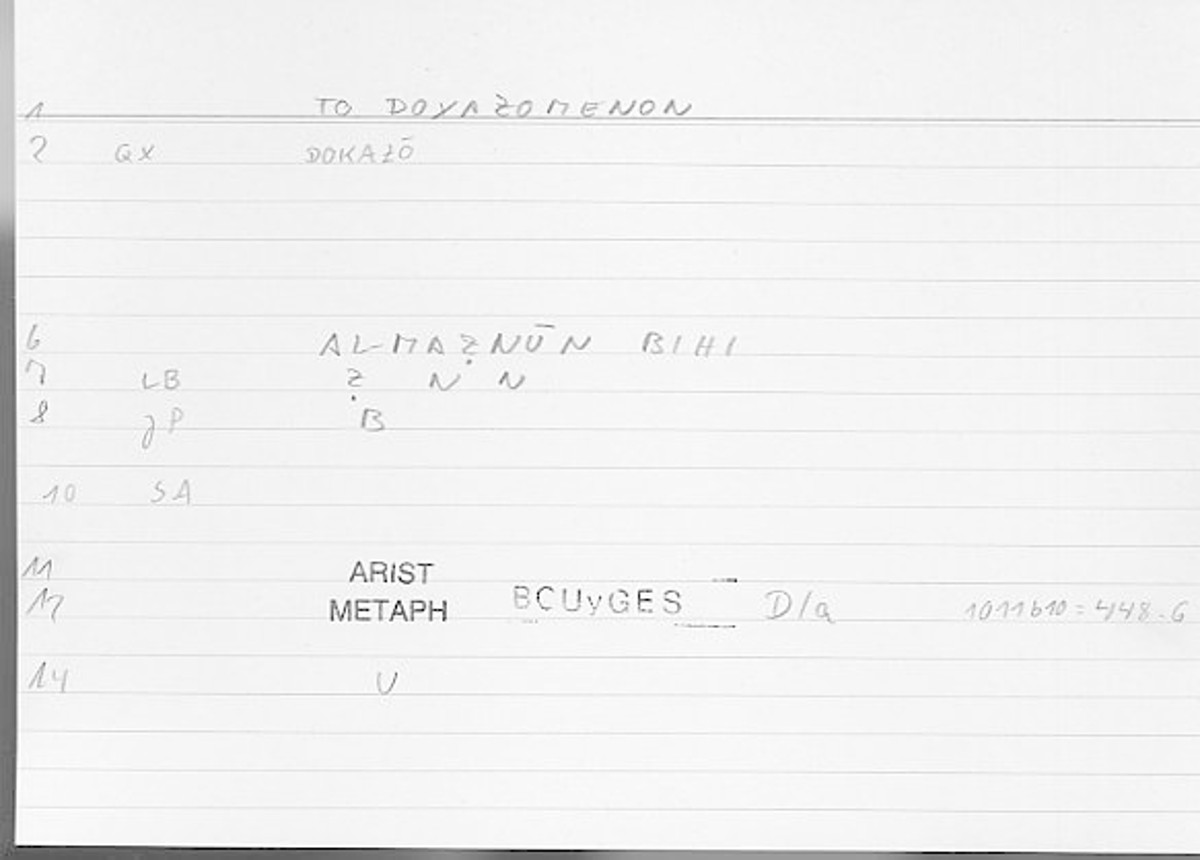 1 TO DOXAZOMENON
2 GX DOKAZŌ
6 AL-MAẒNŪN BIHI
7 LB Ẓ N N
8 JP B
10 SA
11 ARIST
12 METAPH BCUyGES D/a 1011b10 = 448.6
14 U